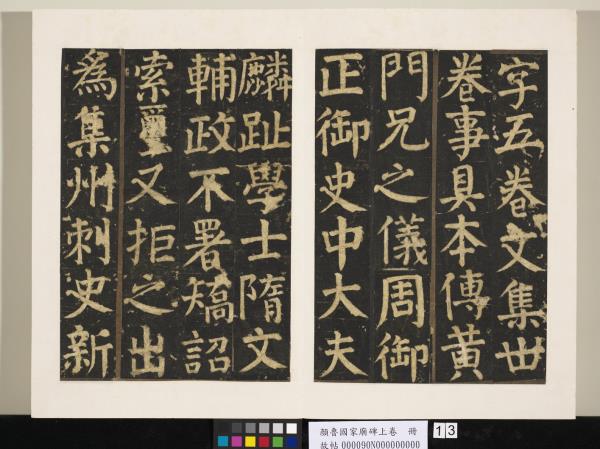 字五卷文集卅
卷事具本傳黃
門兄之儀周御
正御史中大夫
麟趾學士隋文
輔政不署矯詔
索璽又拒之出
為集州刺史新
顏魯國家廟碑上卷 冊
故帖 000090N000000000
13